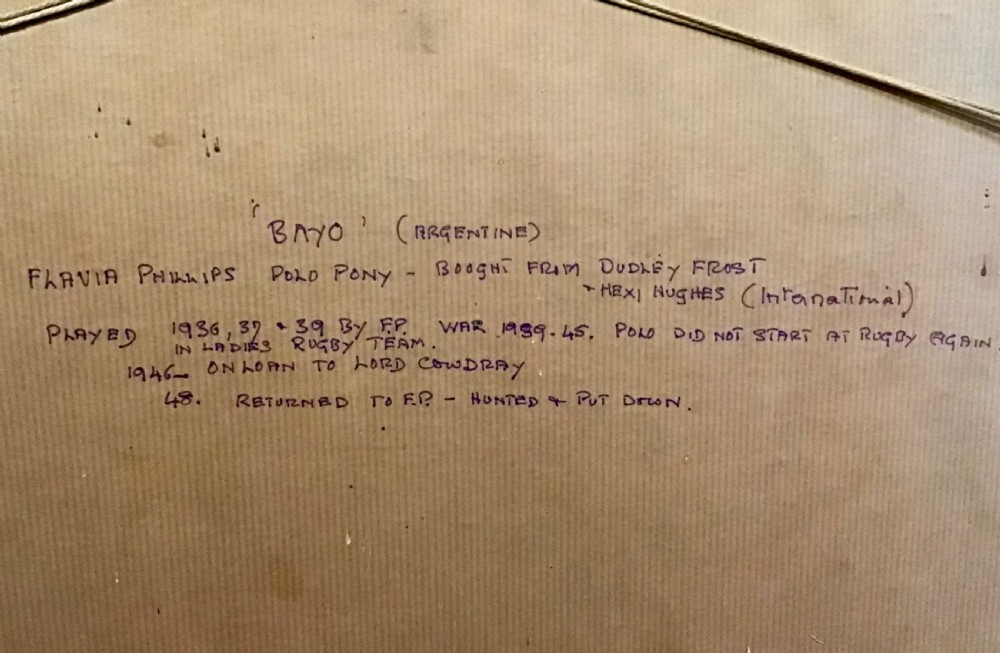 'BAYO' (ARGENTINE)
FLAVIA PHILLIPS POLO PONY - BOUGHT FROM DUDLEY FROST
+ HEXI HUGHES (International)
PLAYED 1936, 37 + 39 BY F.P. WAR 1939-45. POLO DID NOT START AT RUGBY AGAIN
IN LADIES RUGBY TEAM.
1946- ON LOAN TO LORD COWDRAY
48. RETURNED TO F.P. - HUNTED + PUT DOWN.